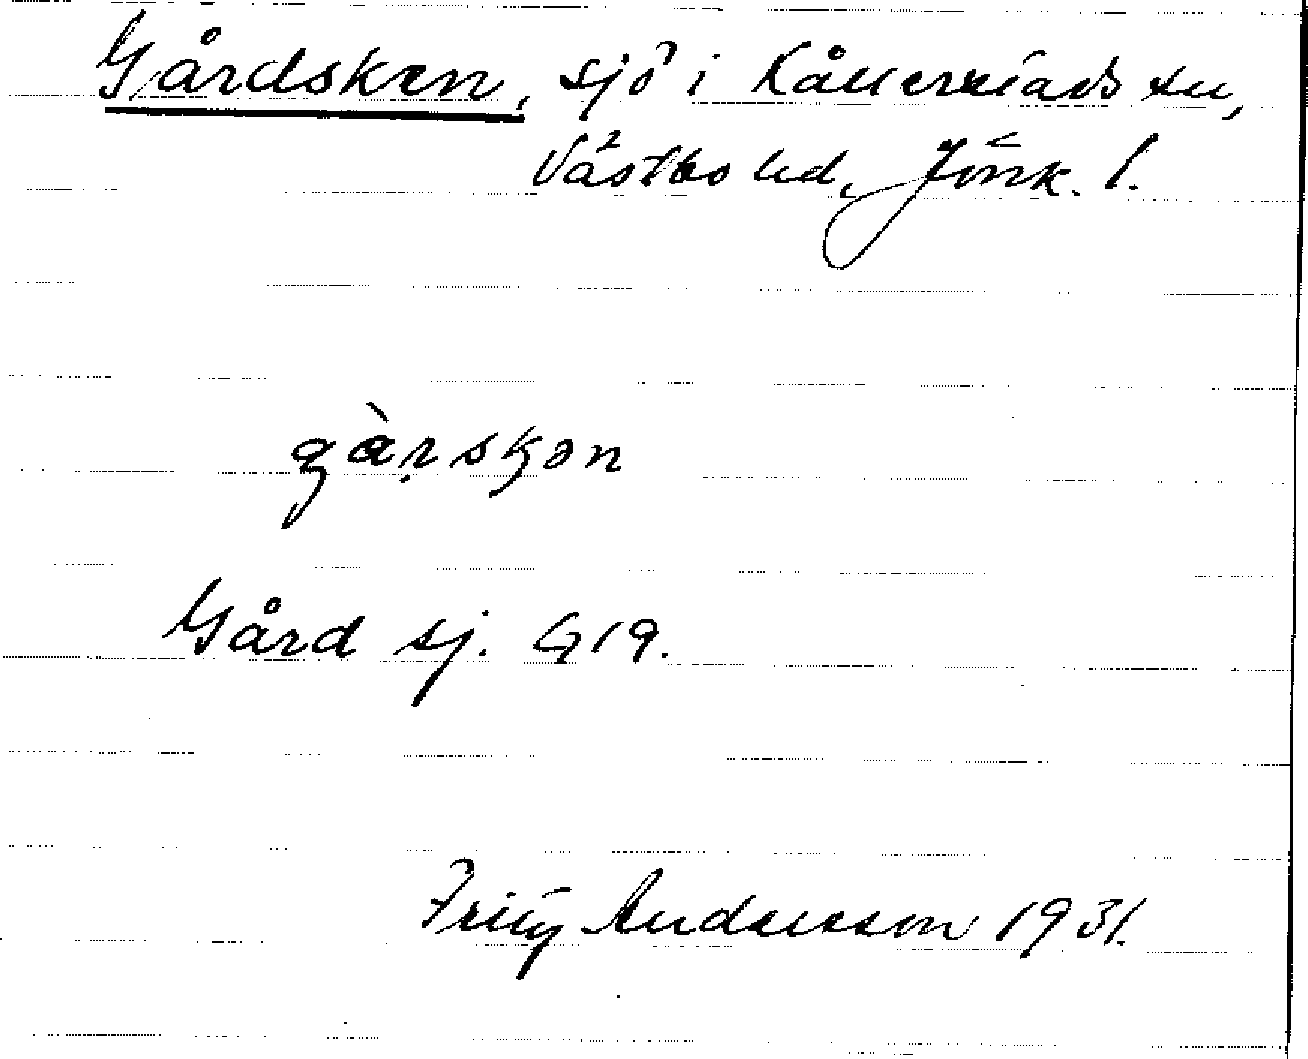 Gårdsken, sjö i Kållerstads sn,
Västbo hd, Jönk. l.
gàr̥skən
Gård sj. G19.
Fritz Andersson 1931.